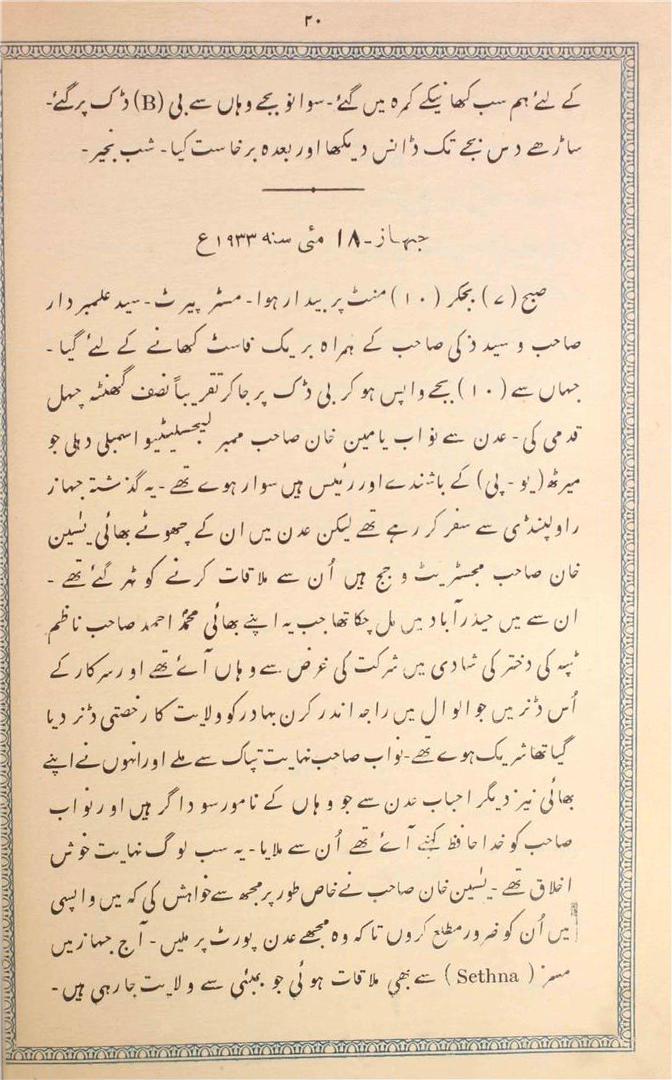 ۲۰
کے لئے ہم سب کھانیکے کمرہ میں گئے۔ سوا نو بجے وہاں سے بی (B) ڈک پر گئے۔
ساڑھے دس بجے تک ڈانس دیکھا اور بعدہ برخاست کیا۔ شب بخیر۔
جہاز۔ ۱۸ مئی سنہ ۱۹۳۳ع
صبح (۷) بجکر (۱۰) منٹ پر بیدار ہوا۔ مسٹر پیرٹ۔ سید علمبردار
صاحب و سید ذکی صاحب کے ہمراہ بریک فاسٹ کھانے کے لئے گیا۔
جہاں سے (۱۰) بجے واپس ہو کر بی ڈک پر جا کر تقریباً نصف گھنٹہ چہل
قدمی کی۔ عدن سے نواب یامین خان صاحب ممبر لیجسلیٹیو اسمبلی دہلی جو
میرٹھ (یو۔ پی) کے باشندے اور رئیس ہیں سوار ہوے تھے۔ یہ گذشتہ جہاز
راولپنڈی سے سفر کر رہے تھے لیکن عدن میں ان کے چھوٹے بھائی یٰسین
خان صاحب مجسٹریٹ و جج ہیں اُن سے ملاقات کرنے کو ٹہر گئے تھے۔
ان سے میں حیدرآباد میں مل چکا تھا جب یہ اپنے بھائی محمد احمد صاحب ناظم
ٹپہ کی دختر کی شادی میں شرکت کی غرض سے وہاں آئے تھے اور سرکار کے
اُس ڈنر میں جو الوال میں راجہ اندر کرن بہادر کو ولایت کا رخصتی ڈنر دیا
گیا تھا شریک ہوے تھے۔ نواب صاحب نہایت تپاک سے ملے اور انہوں نے اپنے
بھائی نیز دیگر احباب عدن سے جو وہاں کے نامور سوداگر ہیں اور نواب
صاحب کو خدا حافظ کہنے آئے تھے اُن سے ملایا۔ یہ سب لوگ نہایت خوش
اخلاق تھے۔ یٰسین خان صاحب نے خاص طور پر مجھ سے خواہش کی کہ میں واپسی
میں اُن کو ضرور مطلع کروں تا کہ وہ مجھے عدن پورٹ پر ملیں۔ آج جہاز میں
مسز (Sethna) سے بھی ملاقات ہوئی جو بمبئی سے ولایت جا رہی ہیں۔